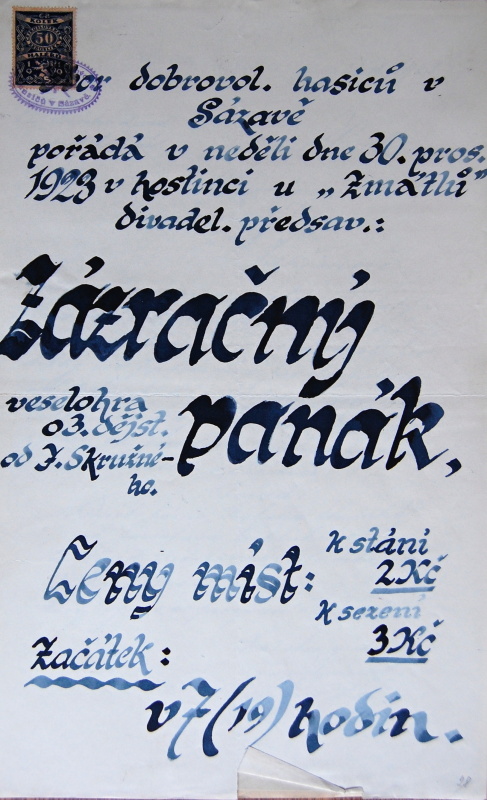 KOLEK
50
Sbor dobrovol. hasičů v
Sázavě
pořádá v neděli dne 30. pros.
1923 v hostinci u „Zmátlů"
divadel. předsav.:
Zázračný
panák,
veselohra
o 3. dějst.
od J. Skružné-
ho.
Ceny míst:
k stání
2 Kč
k sezení
3 Kč
Začátek:
v 7 (19) hodin.
28